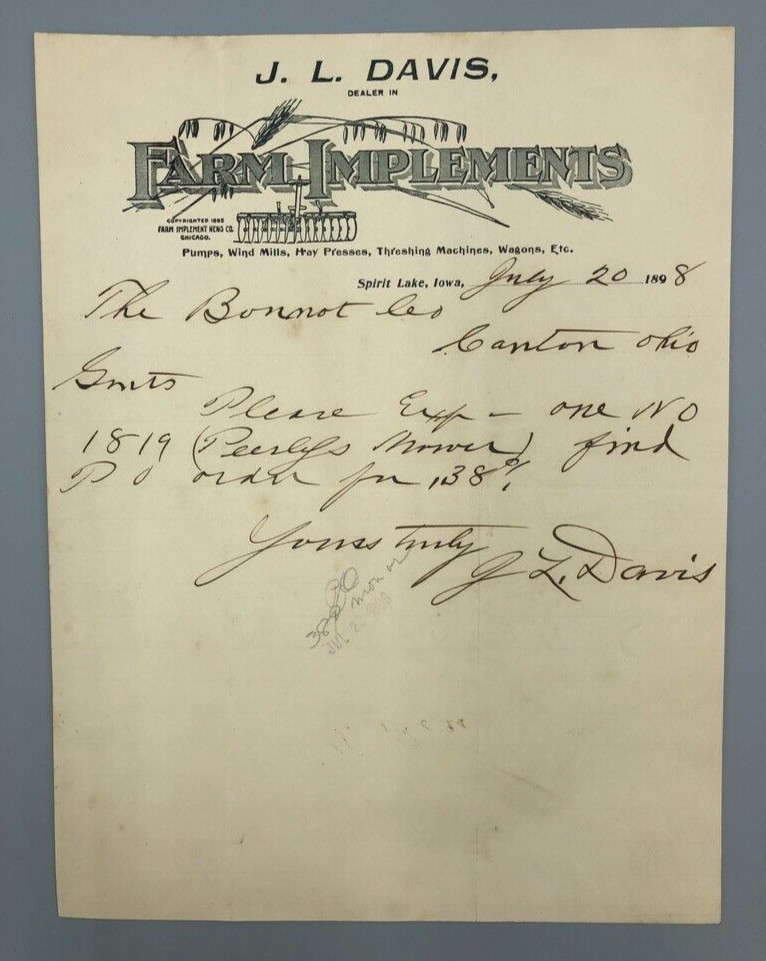 J. L. DAVIS,
DEALER IN
FARM IMPLEMENTS
COPYRIGHTED 1895
FARM IMPLEMENT NEWS CO.
CHICAGO.
Pumps, Wind Mills, Hay Presses, Threshing Machines, Wagons, Etc.
Spirit Lake, Iowa, July 20 1898
The Bonnot Co
Canton Ohio
Gents
Please Exp - one No
1819 (Peerless Mower) find
P O order for .38
Yours truly
J L. Davis
38
JUL 2